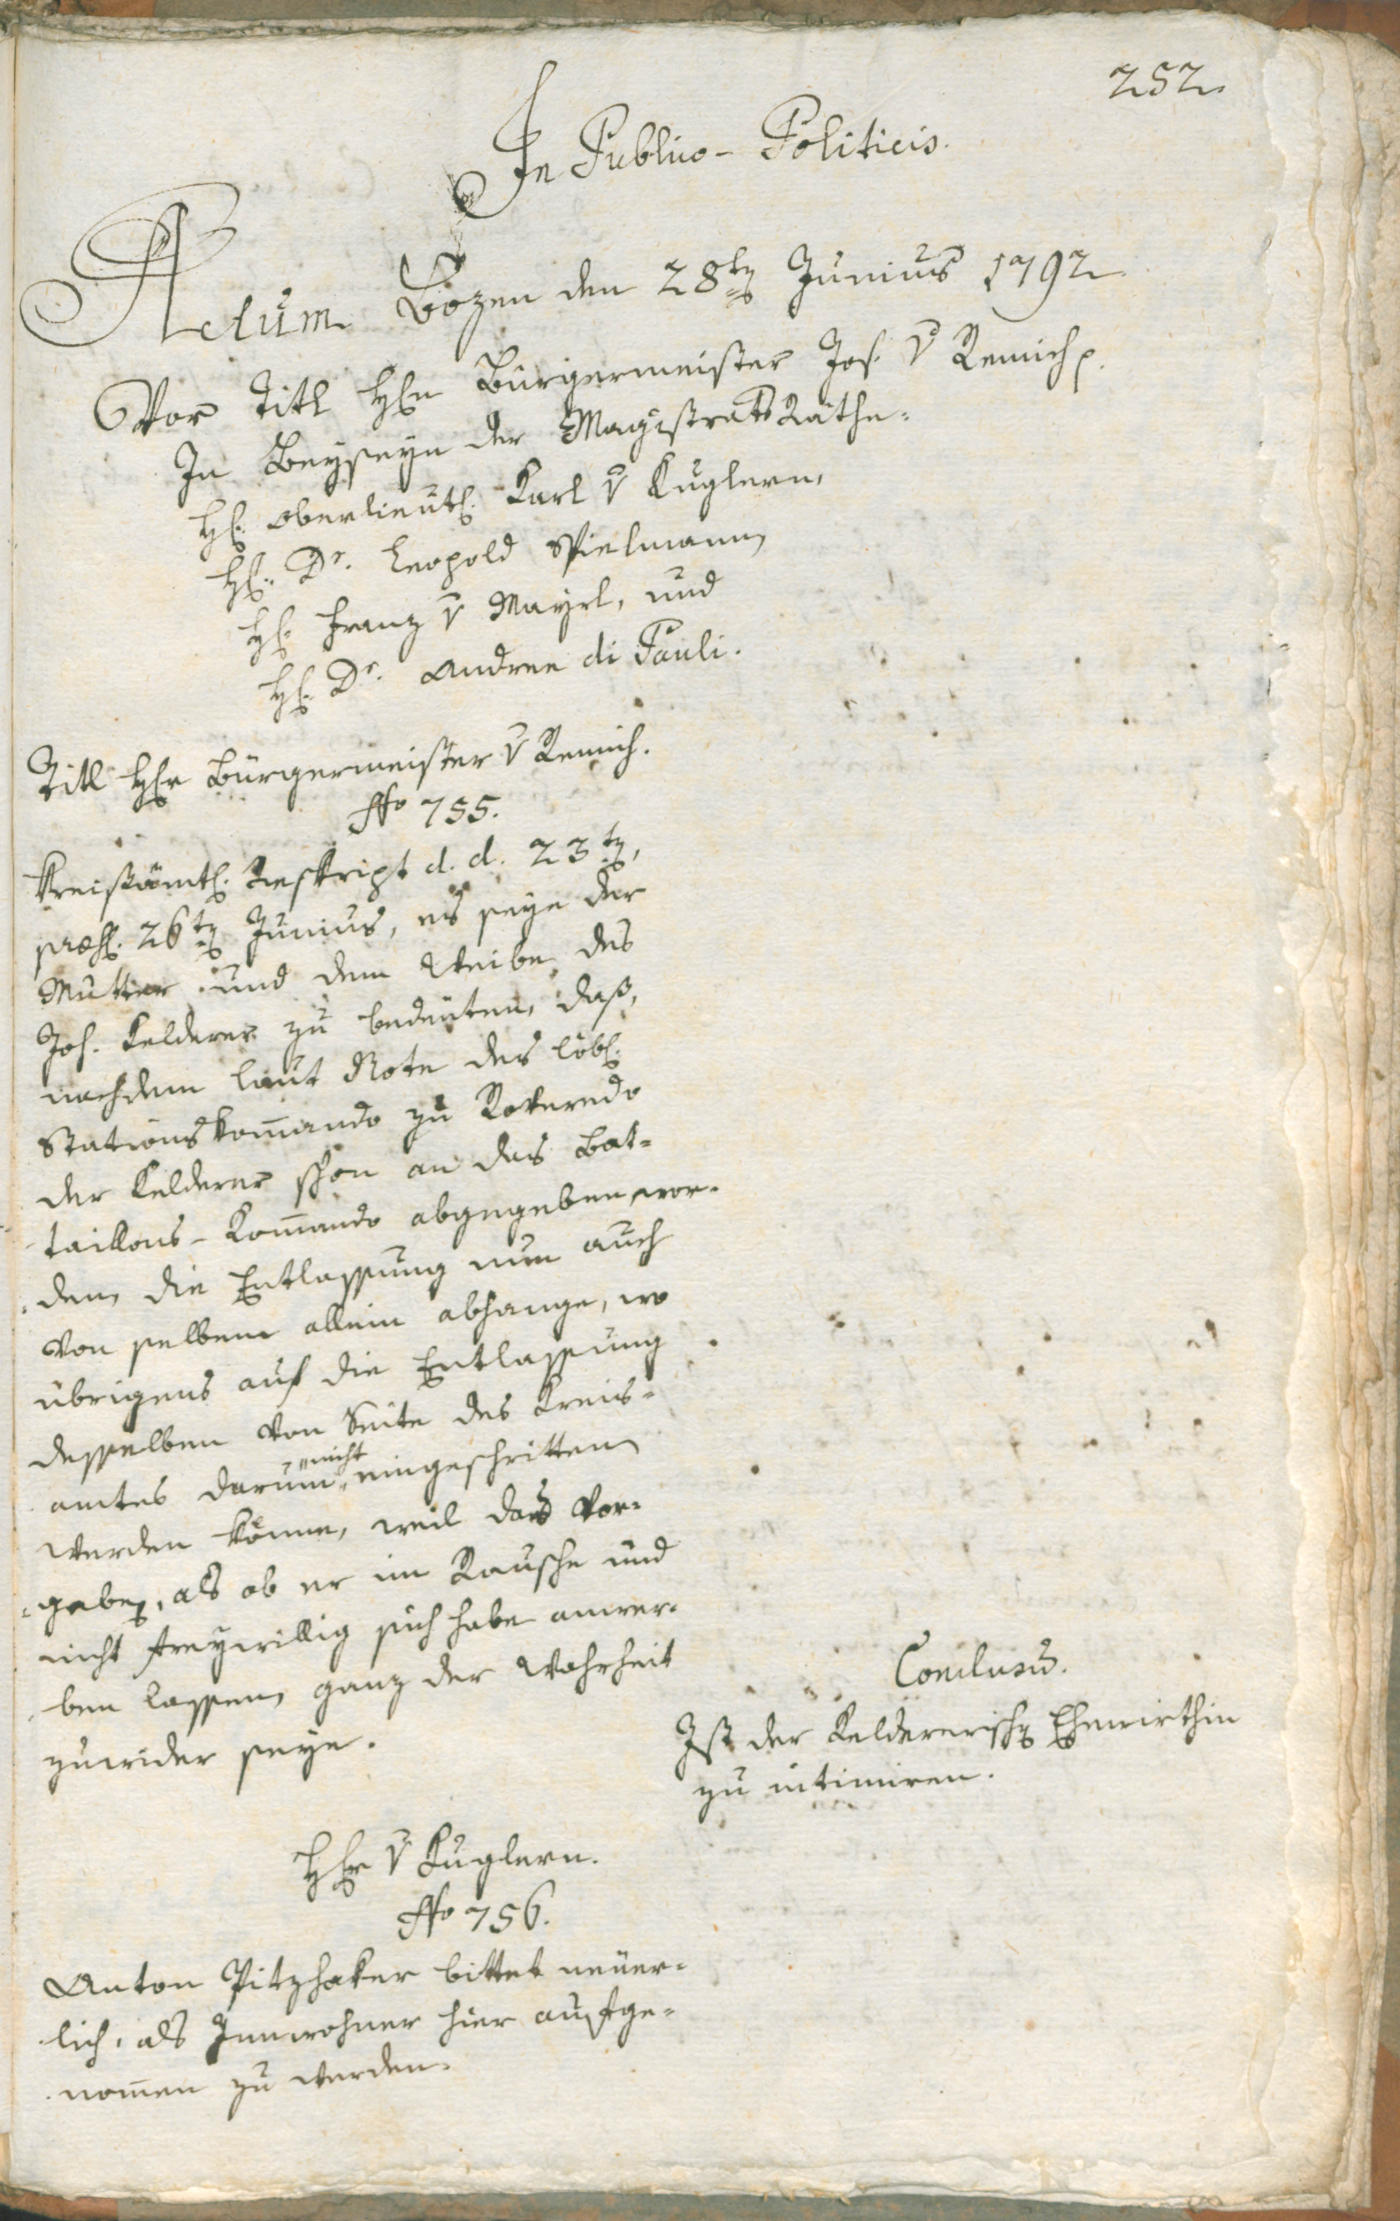 252
In Publico-Politicis.
Actum Bozen den 28tn Junius 1792
Vor Titl Hhn Bürgermeister Jos. v Remich p.
In Beyseyn der Magistrats Räthe:
Hh. Oberlieut. Karl v Kuglern,
Hh. Dr. Leopold Spielmann,
Hh. Franz v Mayrl, und
Hh. Dr. Andree di Pauli.
Titl Hhr Bürgermeister v Remich.
No 755.
Kreisämtl. Reskript d. d. 23tn,
præs. 26tn Junius, es seye der
Mutter und dem Weibe des
Jos. Kelderer zu bedeuten, daß,
nachdem laut Note des löbl.
Stationskom̄ando zu Roveredo
der Kelderer schon an das Bat-
taillons-Kom̄ando abgegeben wor-
den, die Entlassung nun auch
von selbem allein abhange, wo
übrigens auf die Entlassung
desselben von Seite des Kreis-
amtes darum nicht eingeschritten
werden könne, weil das Vor-
geben, als ob er im Rausche und
nicht freywillig sich habe anwer-
ben lassen, ganz der Wahrheit
zuwider seye.
Conclusū.
Ist der Keldererischn Ehewirthin
zu intimiren.
Hhr v Kuglern.
No 756.
Anton Pitzhaker bittet neuer-
lich, als Innwohner hier aufge-
nom̄en zu werden.